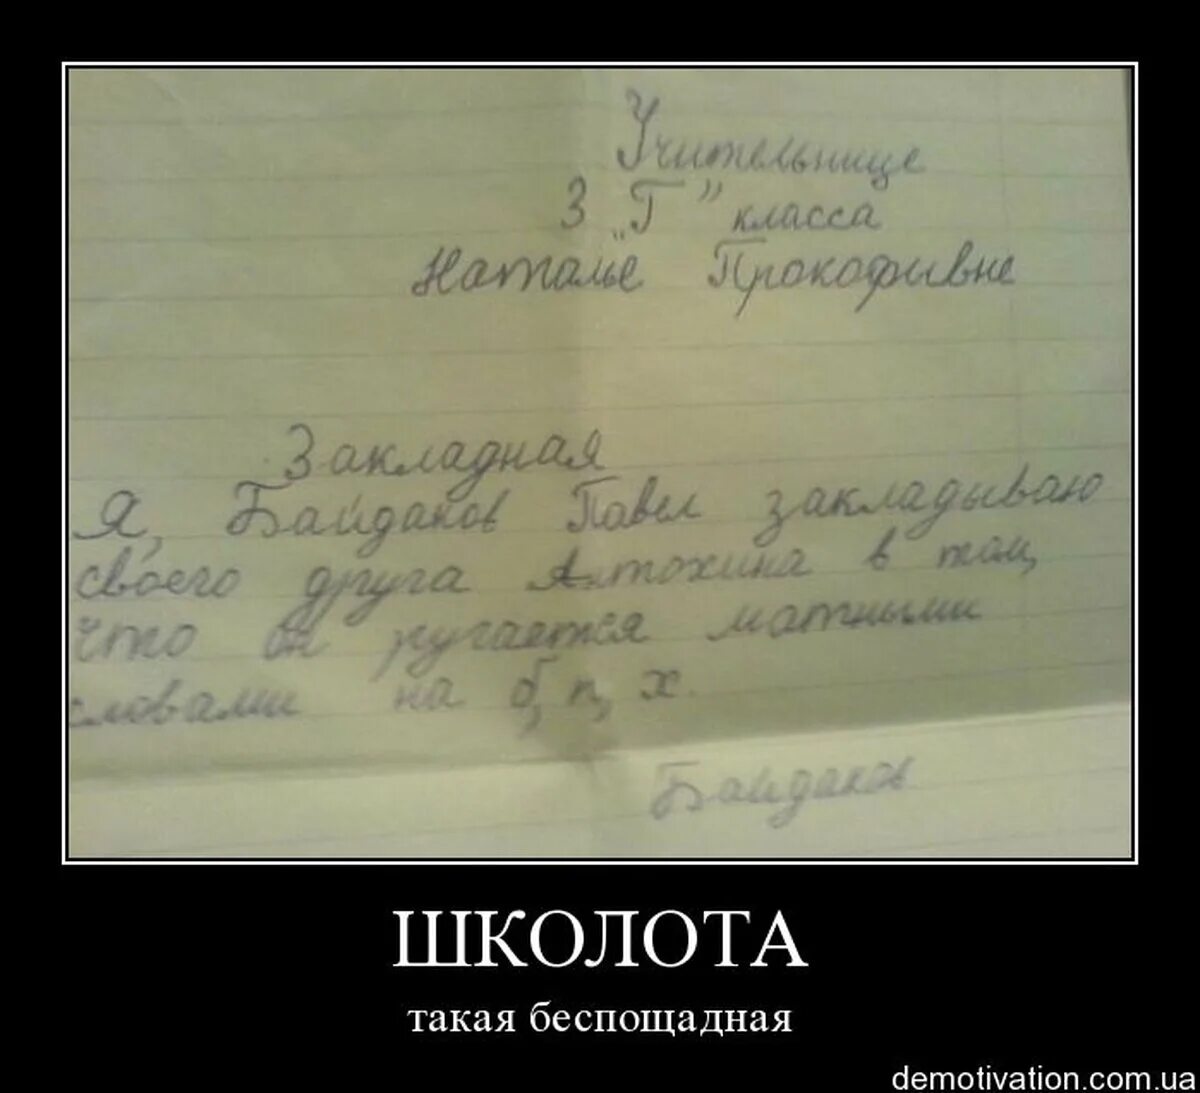 Учительнице
3 „Г" класса
Наталье Прокофывне
Закладная
Я, Байдаков Павел закладываю
своего друга Алтохина в том,
что он ругается матными
словами на б, п, х.
Байдаков
ШКОЛОТА
такая беспощадная
demotivation.com.ua